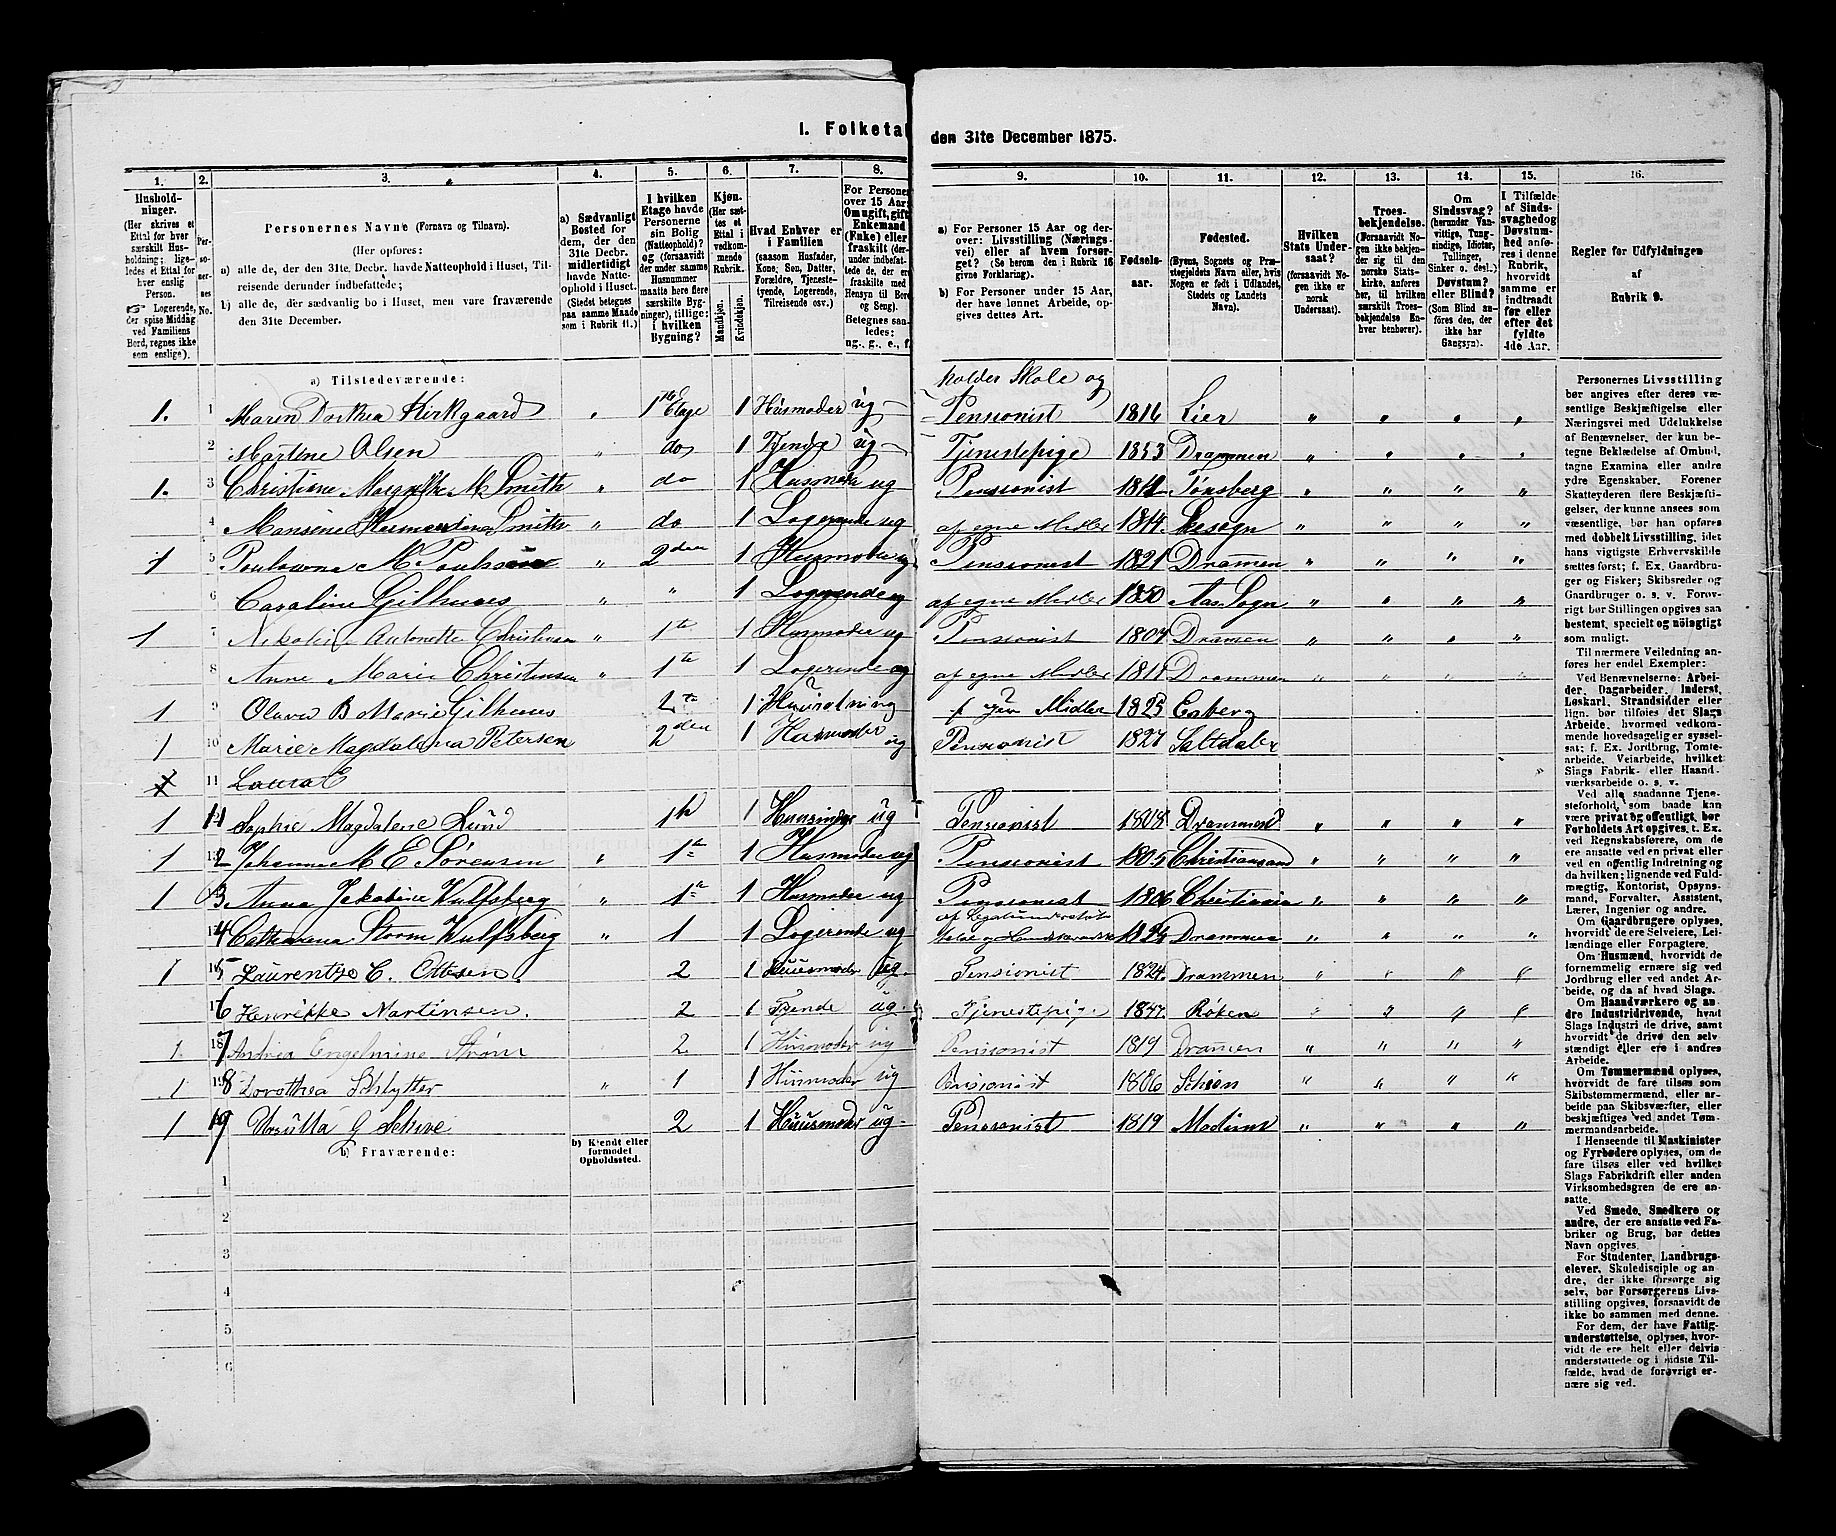 I. Folketal den 31te December 1875.
1. 2. 3. 4. 5. 6. 7. 8. 9. 10. 11. 12. 13. 14. 15. 16.
Husholdninger. (Her skrives et Ettal for hver særskilt Husholdning; ligeledes et Ettal for hver enslig Person. Logerende, der spise Middag ved Familiens Bord, regnes ikke som enslige).
Personernes No.
Personernes Navne (Fornavn og Tilnavn).
(Her opføres:
a) alle de, der den 31te. Decbr. havde Natteophold i Huset, Tilreisende derunder indbefattede;
b) alle de, der sædvanlig bo i Huset, men vare fraværende den 31te December.
a) Sædvanligt Bosted for dem, der den 31te Decbr. midlertidigt havde Natteophold i Huset. (Stedet betegnes paa samme Maade som i Rubrik 11.)
I hvilken Etage havde Personerne sin Bolig (Natteophold)? og (forsaavidt der under samme Husnummer maatte høre flere særskilte Bygninger), tillige: i hvilken Bygning?
Kjøn. (Her sættes et Ettal i vedkommende Rubrik.
Mandkjøn. Kvindekjøn.
Hvad Enhver er i Familien (saasom Husfader, Kone, Søn, Datter, Forældre, Tjenestetyende, Logerende, Tilreisende osv.)
For Personer over 15 Aar: Om ugift, gift, Enkemand (Enke) eller fraskilt (derunder indbefattede, de, der ere fraskilte med Hensyn til Bord og Seng). Betegnes saaledes: ug., g., e., f.
a) For Personer 15 Aar og derover: Livsstilling (Næringsvei) eller af hvem forsørget? (Se herom den i Rubrik 16 givne Forklaring).
b) For Personer under 15 Aar, der have lønnet Arbeide, opgives dettes Art.
Fødselsaar.
Fødested. (Byens, Sognets og Præstegjeldets Navn eller, hvis Nogen er født i Udlandet, Stedets og Landets Navn).
Hvilken Stats Undersaat? (forsaavidt Nogen ikke er norsk Undersaat).
Troesbekjendelse. (Forsaavidt Nogen ikke bekjender sig til den norske Statskirke, anføres her, til hvilken særskilte Troesbekjendelse Enhver henhører).
Om Sindssvag? (herunder Vanvittige, Tungsindige, Idioter, Tullinger, Sinker o. desl.) Døvstum? eller Blind? (Som Blind anføres den, der ikke har Gangsyn.)
I Tilfælde af Sindssvaghed og Døvstumhed anføres i denne Rubrik, hvorvidt samme er indtraadt før eller efter det fyldte 4de Aar.
Regler for Udfyldningen af Rubrik 9.
a) Tilstedeværende:
holder Skole og
1. 1 Maren Dorthea Kirkgaard " 1ste Etage 1 Husmoder ug Pensionist 1816 Lier " " " "
2 Martine Olsen " do 1 Tjende ug Tjenestepige 1853 Drammen " " " "
1. 3 Christiane Margrethe M Smith " do 1 Husmoder ug Pensionist Tønsberg " " " "
4 Smith " do 1 Logerende ug af egne Midler 1814. " " " "
1 5 M Paulsen " 2den 1 Husmoder ug Pensionist 1821 Drammen " " " "
6 Caroline Gilhuus " " 1 Logerende ug af egne Midler 1850 Aas Sogn " " " "
1 7 Antonette Christensen " 1te 1 Husmoder ug Pensionist 1807 Drammen " " " "
8 Anne Marie Christensen " 1te 1 Logerende ug af egne Midler Drammen " " " "
1 9 Olava B Marie Gilhuus 2 1 Midler 1825 Eberg
1 10 Marie Magdalena Petersen 2den 1 Husmoder ug Pensionist 1827 Saltdalen
11 Laura E "
1 11 Sophie Magdalene Lund 1 ug Pensionist Drammen " " " "
1 12 Johanne M E Sørensen " 1te 1 Husmoder ug Pensionist 1805 Christiansand " " " "
1 13 Anna Jakobine Wulfsberg " 1 1 Husmoder ug Pensionist 1806 Christiania " " " "
14 Catharena Storm Wulfsberg " 1 1 Logerende ug Drammen " " " "
1 15 Laurentze C. Ottesen 2 1 Huusmoder ug. Pensionist 1824. Drammen " " " "
16 Henrikke Martinsen. 2 1 Tjende ug. Tjenestepige 1847. Røken " " " "
1. 17 Andrea Engelmine Strøm 2. 1 Husmoder ug Pensionist 1819 Dramen " " " "
1 18 Dorothea Schlytter " 1 1 Husmoder ug Pensionist 1806 Schien " " " "
1 19 G Schive 2 1 Huusmoder ug. Pensionist 1819 Modum " " " "
b) Fraværende:
b) Kjendt eller formodet Opholdssted.
1
2
3
4
5
6
Personernes Livsstilling bør angives efter deres væsentlige Beskjæftigelse eller Næringsvei med Udelukkelse af Benævnelser, der kun betegne Beklædelse af Ombud, tagne Examina eller andre ydre Egenskaber. Forener Skatteyderen flere Beskjæftigelser, der kunne ansees som væsentlige, bør han opføres med dobbelt Livsstilling, idet hans vigtigste Erhvervskilde sættes først; f. Ex. Gaardbruger og Fisker; Skibsreder og Gaardbruger o. s. v. Forøvrigt bør Stillingen opgives saa bestemt, specielt og nöiagtigt som muligt.
Til nærmere Veiledning anføres her endel Exempler:
Ved Benævnelserne: Arbeider, Dagarbeider, Inderst, Løskarl, Strandsidder eller lign. bør tilføies det Slags Arbeide, hvormed vedkommende hovedsagelig er sysselsat; f. Ex. Jordbrug, Tomtearbeide, Veiarbeide, hvilket Slags Fabrik- eller Haandværksarbeide o. s. v.
Ved alle saadanne Tjenesteforhold, som baade kan være privat og offentligt, bør Forholdets Art opgives, t. Ex. ved Regnskabsførere, om de ere ansatte ved en privat eller ved en offentlig Indretning og da hvilken; lignende ved Fuldmægtig, Kontorist, Opsynsmand, Forvalter, Assistent, Lærer, Ingeniør og andre.
Om Gaardbrugere oplyses, hvorvidt de ere Selveiere, Leilændinge eller Forpagtere.
Om Husmænd, hvorvidt de fornemmelig ernære sig ved Jordbrug eller ved andet Arbeide, og da af hvad Slags.
Om Haandværkere og andre Industridrivende, hvad Slags Industri de drive, samt hvorvidt de drive den selvstændigt eller ere i andres Arbeide.
Om Tømmermænd oplyses, hvorvidt de fare tilsøs som Skibstømmermænd, eller arbeide paa Skibsværfter, eller beskjæftiges ved andet Tømmermandsarbeide.
I Henseende til Maskinister og Fyrbødere oplyses, om de fare tilsøs eller ved hvilket Slags Fabrikdrift eller anden Virksomhedsgren de ere ansatte.
Ved Smede, Snedkere og andre, der ere ansatte ved Fabriker og Brug, bør dettes Navn opgives.
For Studenter, Landbrugselever, Skoledisciple og andre, der ikke forsørge sig selv, bør Forsørgerens Livsstilling opgives, forsaavidt de ikke bo sammen med denne.
For dem, der have Fattigunderstøttelse, oplyses, hvorvidt de ere helt eller delvis understøttede og i sidste Tilfælde, hvad de forøvrigt ernære sig ved.